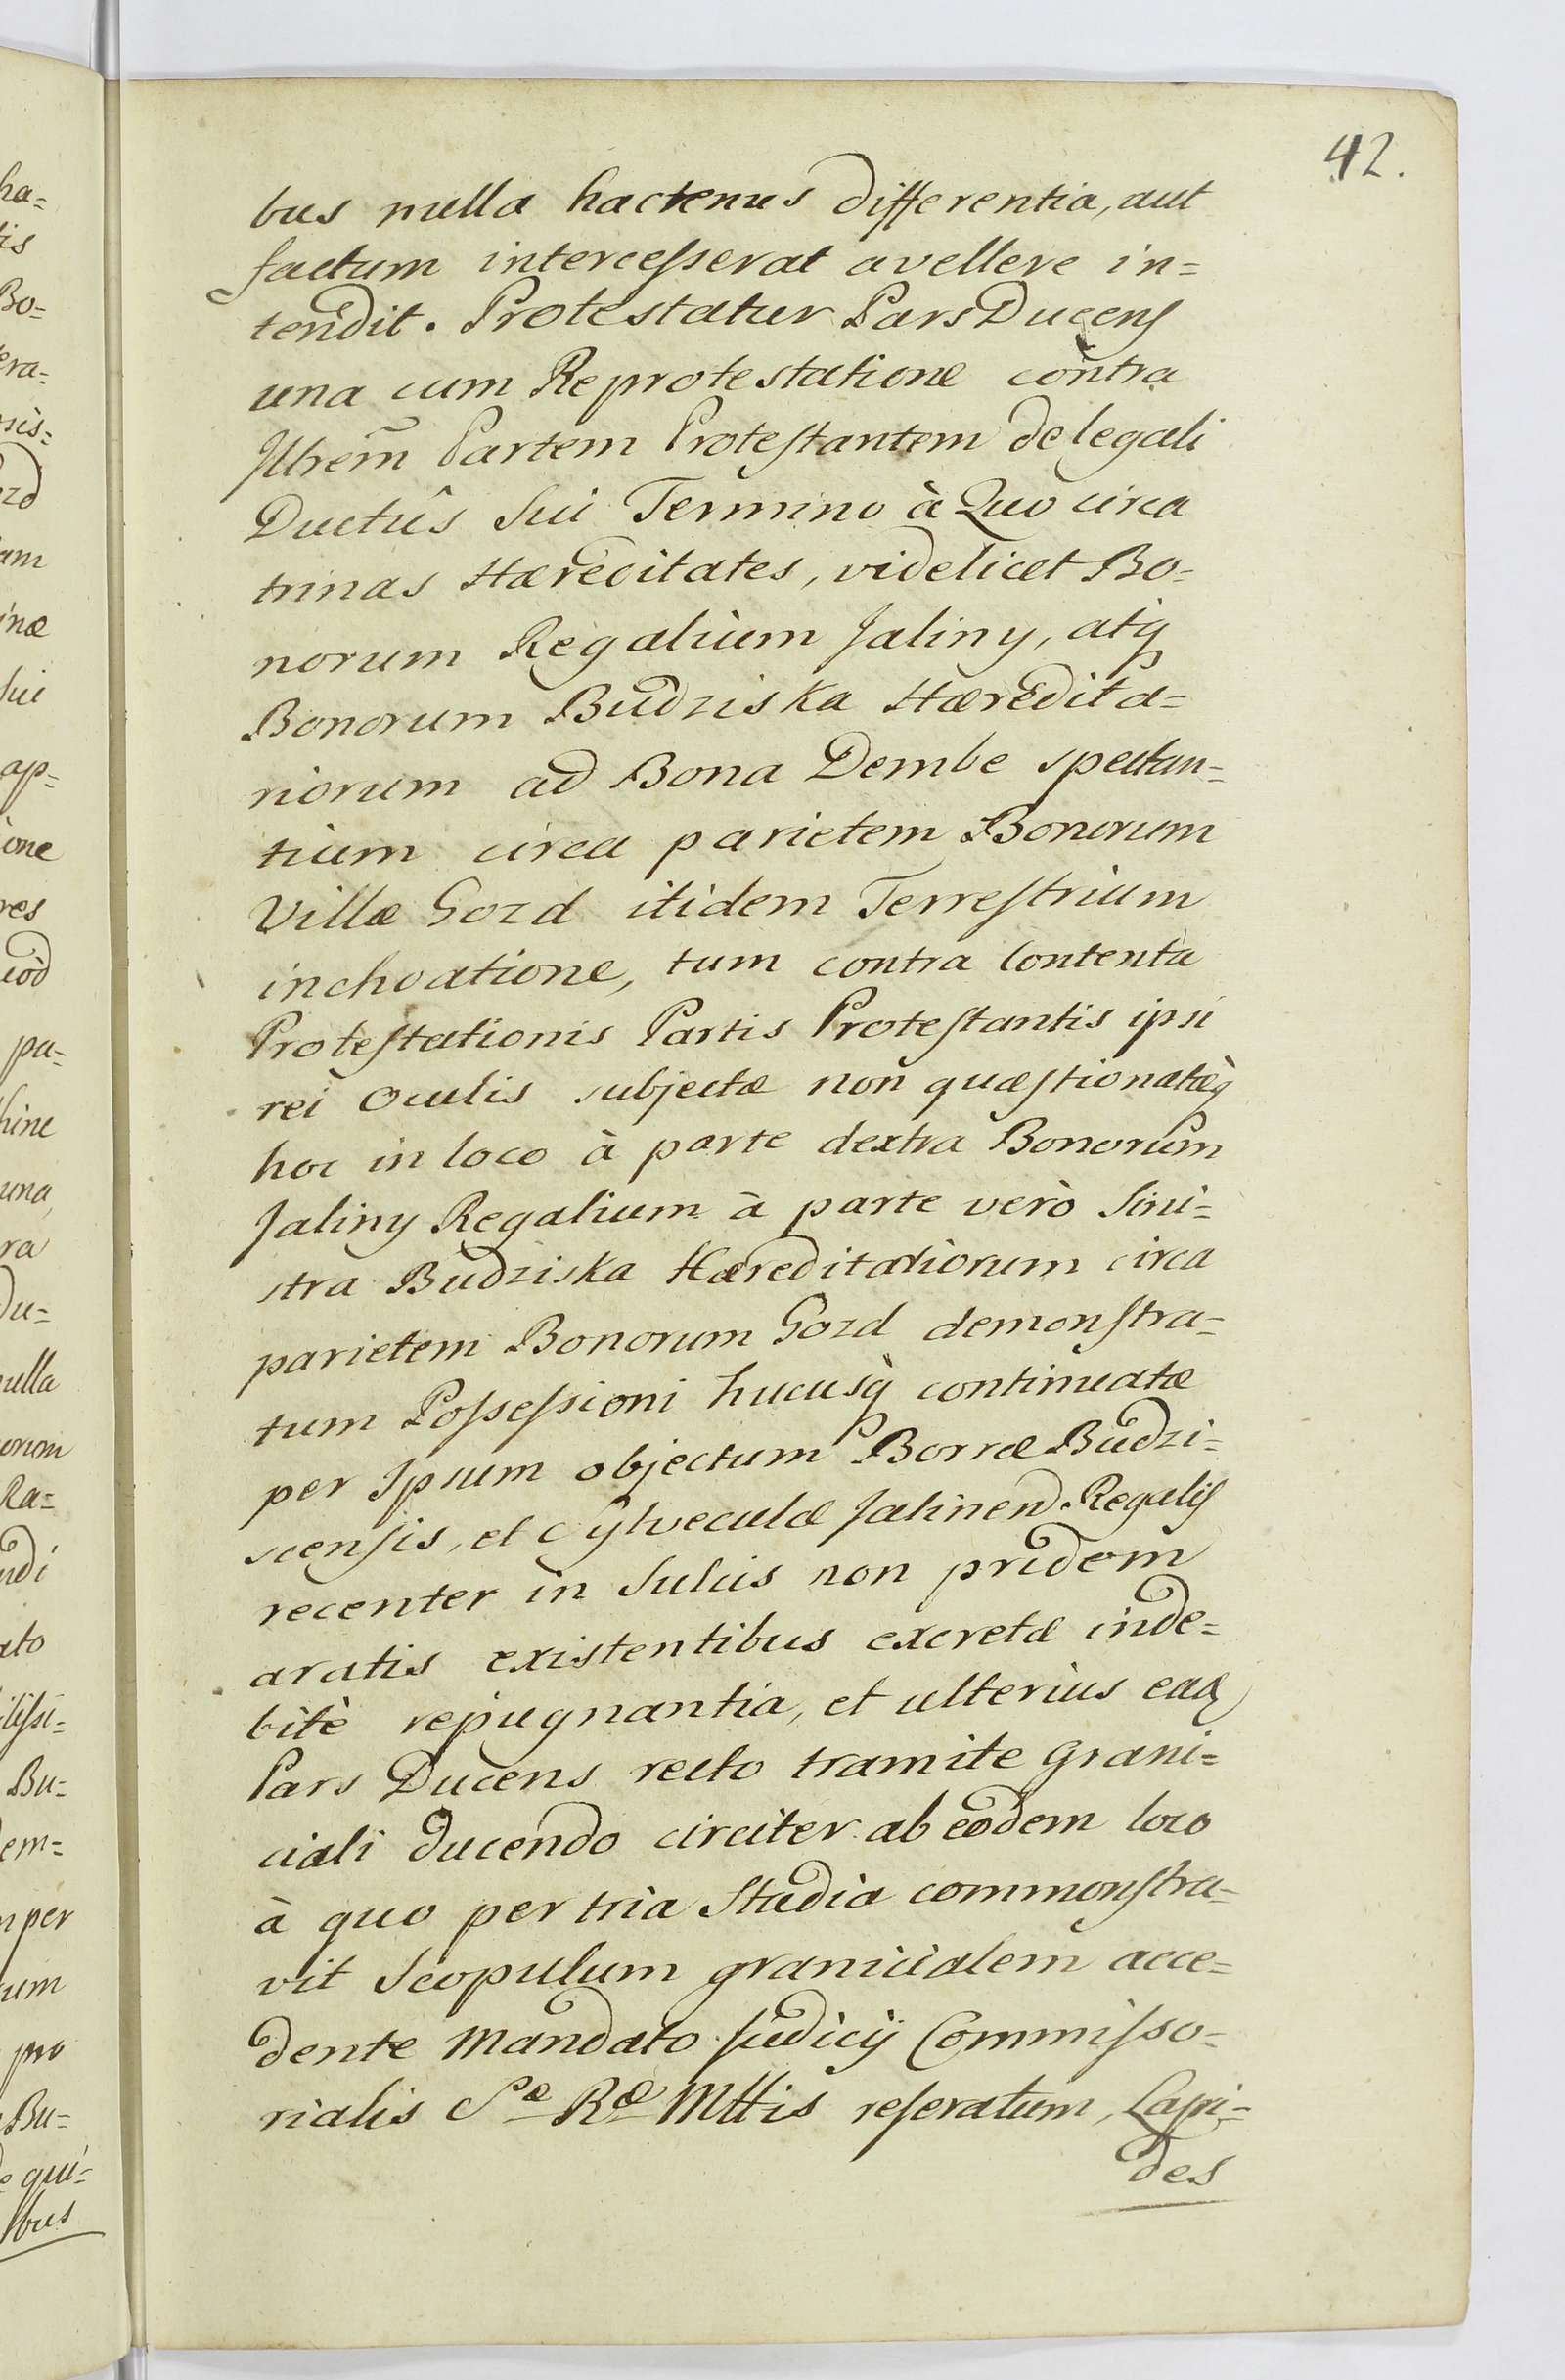 42.
bus nulla hactenus differentia, aut
factum intercesserat avellere in=
tendit. Protestatur Pars Ducens
una cum Reprotestatione contra
Illrem̃ Partem Protestantem de legali
Ductûs Sui Termino à Quo circa
trinas Hæreditates, videlicet Bo=
norum Regalium Jaliny, atq
Bonorum Budziska Hæredita=
riorum ad Bona Dembe spectan=
tium circa parietem Bonorum
Villæ Gozd itidem Terrestrium
inchoatione, tum contra Contenta
Protestationis Partis Protestantis ipsi
rei Oculis subjectæ non quæstionatæq̀
hoc in loco à parte dextra Bonorum
Jaliny Regalium à parte verò Sini=
stra Budziska Hæreditariorum circa
parietem Bonorum Gozd demonstra=
tum Possessioni hucusq̀ continuatæ
per Ipsum objectum Borræ Budzi=
scensis, et Sylveculæ Jalinen. Regalis
recenter in Sulcis non pridem
aratis existentibus excretæ inde=
bitè repugnantia, et ulterius eaq
Pars Ducens recto tramite Grani=
ciali ducendo circiter ab eodem loco
à quo per tria Stadia commonstra=
vit Scopulum granicialem acce=
dente Mandato Judicij Commisso=
rialis Sæ Ræ Mttis reseratum, Lapi=
des
ha=
tis
Bo=
am
inæ
Sui
ap=
ione
res
pa=
hinc
una,
ra
Du=
nulla
Ra=
ndi
Bu=
dem=
per
um
pro
Bu=
qui=
bus